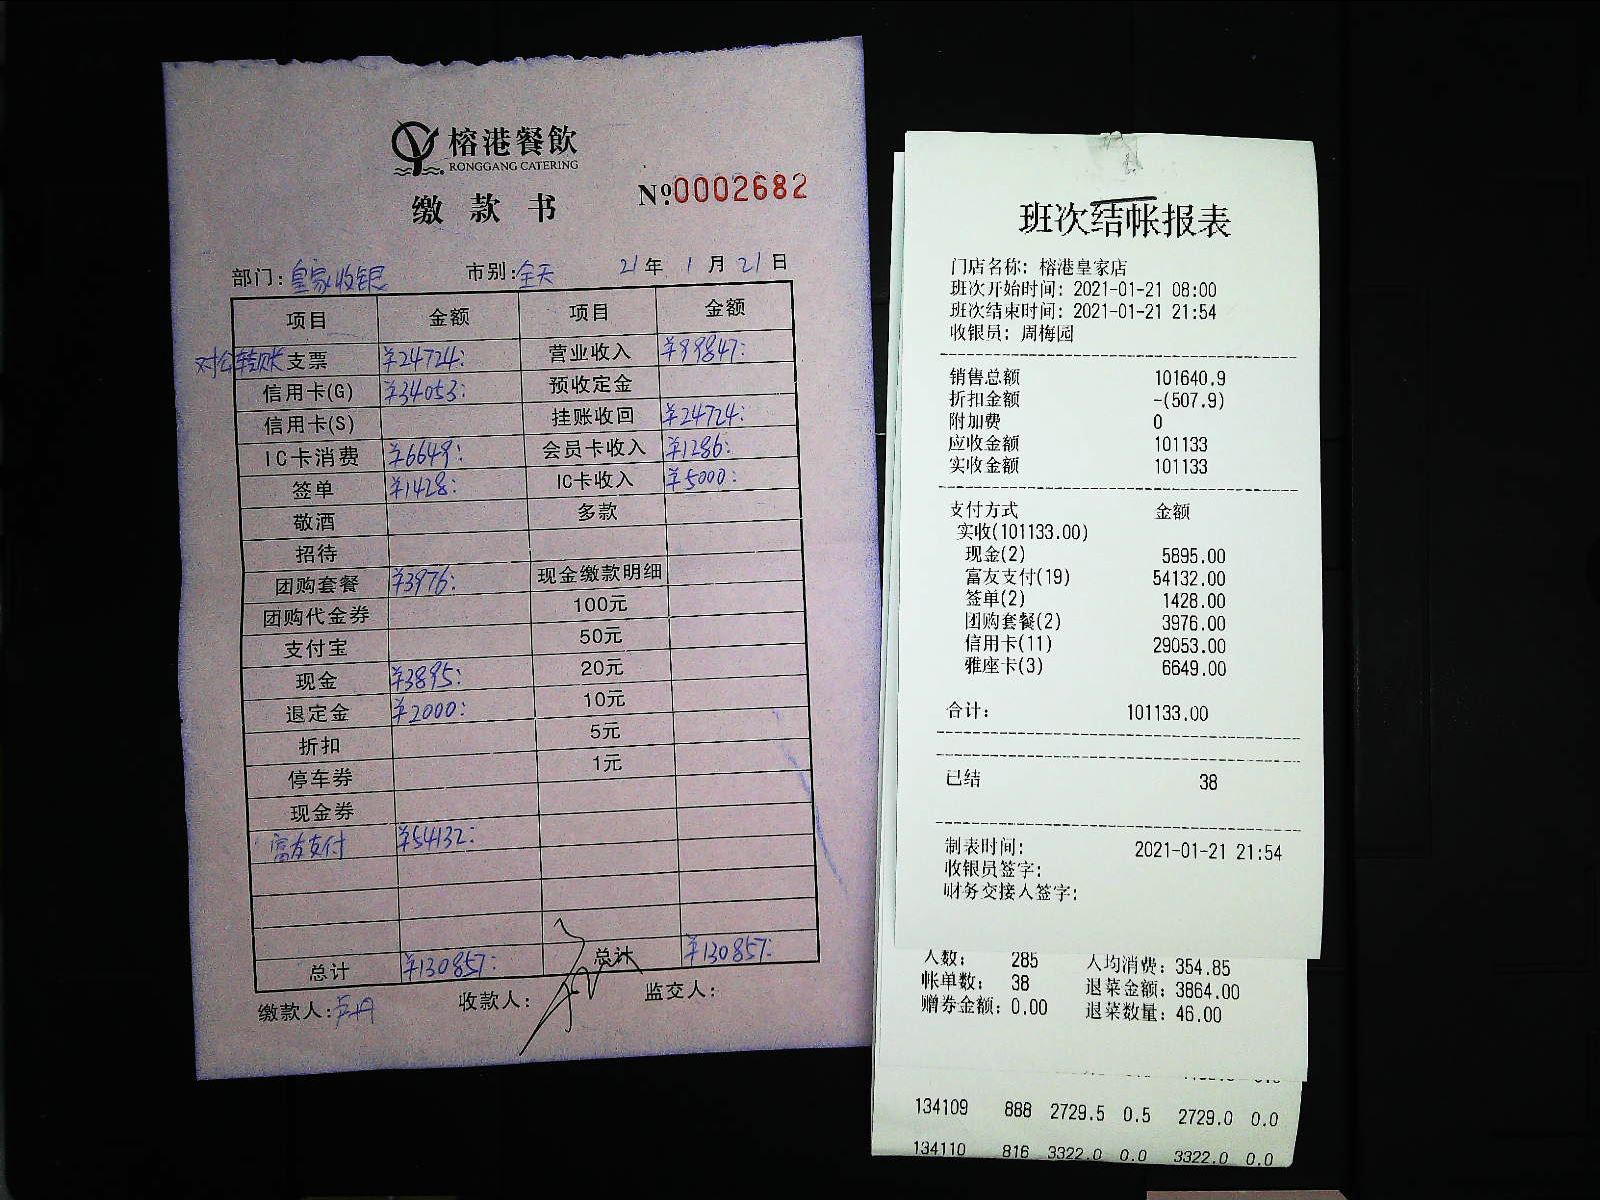 榕港餐飲
RONGGANG CATERING
缴款书
Nº0002682
部门:皇家收银 市别:全天 21年1月21日
项目 金额 项目 金额
对公转账支票 ¥24724: 营业收入 ¥99847:
信用卡(G) ¥34053: 预收定金
信用卡(S) 挂账收回 ¥24724:
IC卡消费 ¥6649: 会员卡收入 ¥1286:
签单 ¥1428: IC卡收入 ¥5000:
敬酒 多款
招待
团购套餐 ¥3976: 现金缴款明细
团购代金券 100元
支付宝 50元
现金 ¥3895: 20元
退定金 ¥2000: 10元
折扣 5元
停车券 1元
现金券
富友支付 ¥54132:
总计 ¥130857: 总计 ¥130857:
缴款人: 收款人: 监交人:
班次结帐报表
门店名称: 榕港皇家店
班次开始时间: 2021-01-21 08:00
班次结束时间: 2021-01-21 21:54
收银员: 周梅园
销售总额 101640.9
折扣金额 -(507.9)
附加费 0
应收金额 101133
实收金额 101133
支付方式 金额
实收(101133.00)
现金(2) 5895.00
富友支付(19) 54132.00
签单(2) 1428.00
团购套餐(2) 3976.00
信用卡(11) 29053.00
雅座卡(3) 6649.00
合计: 101133.00
已结 38
制表时间: 2021-01-21 21:54
收银员签字:
财务交接人签字:
人数: 285 人均消费: 354.85
帐单数: 38 退菜金额: 3864.00
赠券金额: 0.00 退菜数量: 46.00
134109 888 2729.5 0.5 2729.0 0.0
134110 816 3322.0 0.0 3322.0 0.0